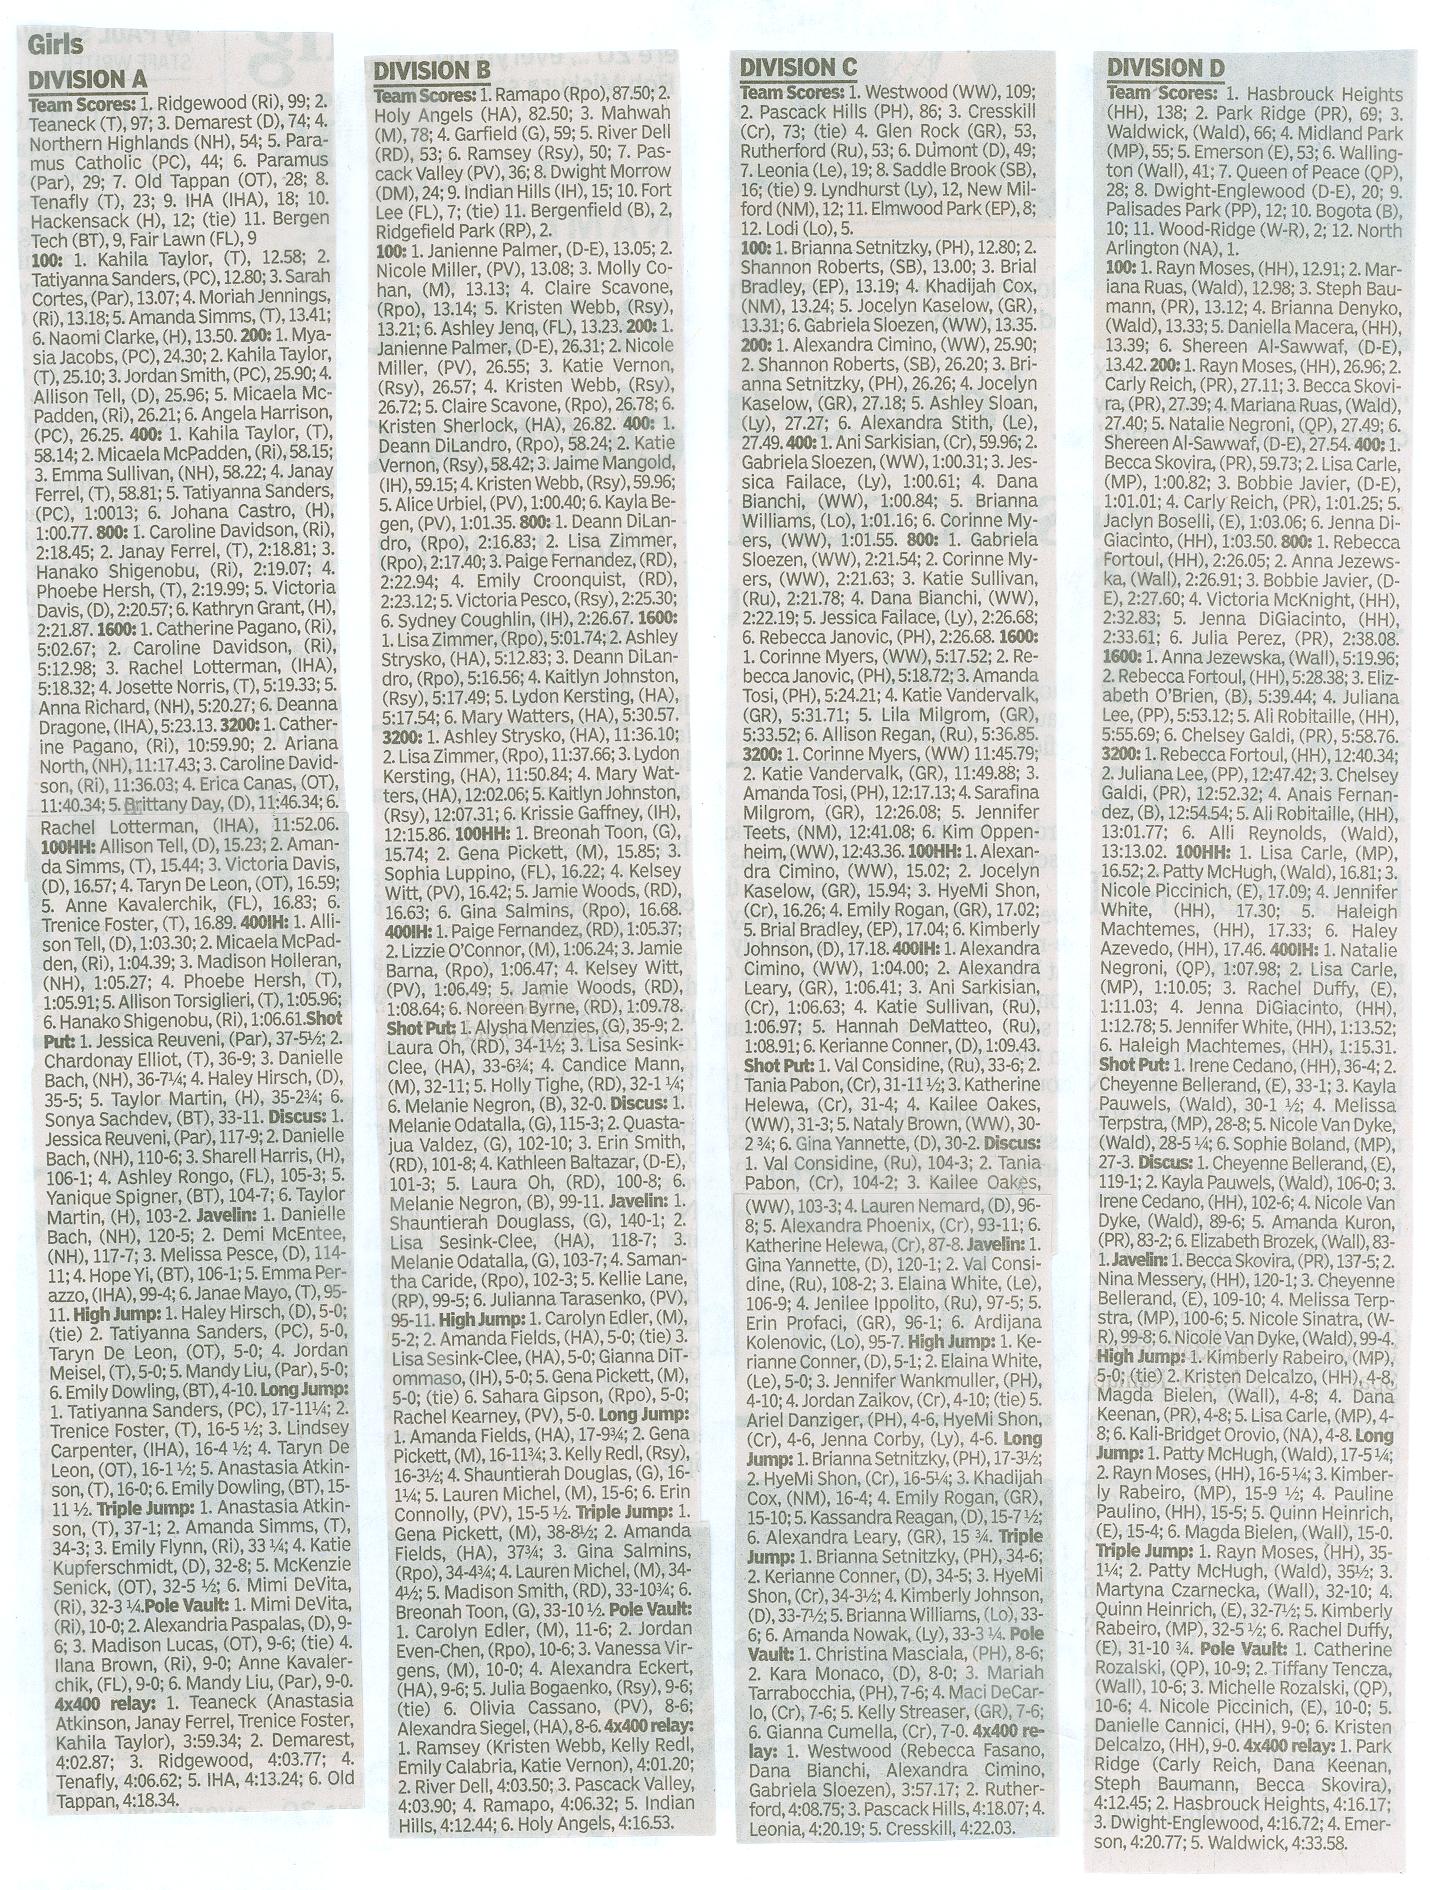 Girls
DIVISION A
Team Scores: 1. Ridgewood (Ri), 99; 2.
Teaneck (T), 97; 3. Demarest (D), 74; 4.
Northern Highlands (NH), 54; 5. Para-
mus Catholic (PC), 44; 6. Paramus
(Par), 29; 7. Old Tappan (OT), 28; 8.
Tenafly (T), 23; 9. IHA (IHA), 18; 10.
Hackensack (H), 12; (tie) 11. Bergen
Tech (BT), 9, Fair Lawn (FL), 9
100: 1. Kahila Taylor, (T), 12.58; 2.
Tatiyanna Sanders, (PC), 12.80; 3. Sarah
Cortes, (Par), 13.07; 4. Moriah Jennings,
(Ri), 13.18; 5. Amanda Simms, (T), 13.41;
6. Naomi Clarke, (H), 13.50. 200: 1. Mya-
sia Jacobs, (PC), 24.30; 2. Kahila Taylor,
(T), 25.10; 3. Jordan Smith, (PC), 25.90; 4.
Allison Tell, (D), 25.96; 5. Micaela Mc-
Padden, (Ri), 26.21; 6. Angela Harrison,
(PC), 26.25. 400: 1. Kahila Taylor, (T),
58.14; 2. Micaela McPadden, (Ri), 58.15;
3. Emma Sullivan, (NH), 58.22; 4. Janay
Ferrel, (T), 58.81; 5. Tatiyanna Sanders,
(PC), 1:0013; 6. Johana Castro, (H),
1:00.77. 800: 1. Caroline Davidson, (Ri),
2:18.45; 2. Janay Ferrel, (T), 2:18.81; 3.
Hanako Shigenobu, (Ri), 2:19.07; 4.
Phoebe Hersh, (T), 2:19.99; 5. Victoria
Davis, (D), 2:20.57; 6. Kathryn Grant, (H),
2:21.87. 1600: 1. Catherine Pagano, (Ri),
5:02.67; 2. Caroline Davidson, (Ri),
5:12.98; 3. Rachel Lotterman, (IHA),
5:18.32; 4. Josette Norris, (T), 5:19.33; 5.
Anna Richard, (NH), 5:20.27; 6. Deanna
Dragone, (IHA), 5:23.13. 3200: 1. Cather-
ine Pagano, (Ri), 10:59.90; 2. Ariana
North, (NH), 11:17.43; 3. Caroline David-
son, (Ri), 11:36.03; 4. Erica Canas, (OT),
11:40.34; 5. Brittany Day, (D), 11:46.34; 6.
Rachel Lotterman, (IHA), 11:52.06.
100HH: Allison Tell, (D), 15.23; 2. Aman-
da Simms, (T), 15.44; 3. Victoria Davis,
(D), 16.57; 4. Taryn De Leon, (OT), 16.59;
5. Anne Kavalerchik, (FL), 16.83; 6.
Trenice Foster, (T), 16.89. 400IH: 1. Alli-
son Tell, (D), 1:03.30; 2. Micaela McPad-
den, (Ri), 1:04.39; 3. Madison Holleran,
(NH), 1:05.27; 4. Phoebe Hersh, (T),
1:05.91; 5. Allison Torsiglieri, (T), 1:05.96;
6. Hanako Shigenobu, (Ri), 1:06.61.Shot
Put: 1. Jessica Reuveni, (Par), 37-5½; 2.
Chardonay Elliot, (T), 36-9; 3. Danielle
Bach, (NH), 36-7¼; 4. Haley Hirsch, (D),
35-5; 5. Taylor Martin, (H), 35-2¾; 6.
Sonya Sachdev, (BT), 33-11. Discus: 1.
Jessica Reuveni, (Par), 117-9; 2. Danielle
Bach, (NH), 110-6; 3. Sharell Harris, (H),
106-1; 4. Ashley Rongo, (FL), 105-3; 5.
Yanique Spigner, (BT), 104-7; 6. Taylor
Martin, (H), 103-2. Javelin: 1. Danielle
Bach, (NH), 120-5; 2. Demi McEntee,
(NH), 117-7; 3. Melissa Pesce, (D), 114-
11; 4. Hope Yi, (BT), 106-1; 5. Emma Per-
azzo, (IHA), 99-4; 6. Janae Mayo, (T), 95-
11. High Jump: 1. Haley Hirsch, (D), 5-0;
(tie) 2. Tatiyanna Sanders, (PC), 5-0,
Taryn De Leon, (OT), 5-0; 4. Jordan
Meisel, (T), 5-0; 5. Mandy Liu, (Par), 5-0;
6. Emily Dowling, (BT), 4-10. Long Jump:
1. Tatiyanna Sanders, (PC), 17-11¼; 2.
Trenice Foster, (T), 16-5 ½; 3. Lindsey
Carpenter, (IHA), 16-4 ½; 4. Taryn De
Leon, (OT), 16-1 ½; 5. Anastasia Atkin-
son, (T), 16-0; 6. Emily Dowling, (BT), 15-
11 ½. Triple Jump: 1. Anastasia Atkin-
son, (T), 37-1; 2. Amanda Simms, (T),
34-3; 3. Emily Flynn, (Ri), 33 ¼; 4. Katie
Kupferschmidt, (D), 32-8; 5. McKenzie
Senick, (OT), 32-5 ½; 6. Mimi DeVita,
(Ri), 32-3 ¼.Pole Vault: 1. Mimi DeVita,
(Ri), 10-0; 2. Alexandria Paspalas, (D), 9-
6; 3. Madison Lucas, (OT), 9-6; (tie) 4.
Ilana Brown, (Ri), 9-0; Anne Kavaler-
chik, (FL), 9-0; 6. Mandy Liu, (Par), 9-0.
4x400 relay: 1. Teaneck (Anastasia
Atkinson, Janay Ferrel, Trenice Foster,
Kahila Taylor), 3:59.34; 2. Demarest,
4:02.87; 3. Ridgewood, 4:03.77; 4.
Tenafly, 4:06.62; 5. IHA, 4:13.24; 6. Old
Tappan, 4:18.34.
DIVISION B
Team Scores: 1. Ramapo (Rpo), 87.50; 2.
Holy Angels (HA), 82.50; 3. Mahwah
(M), 78; 4. Garfield (G), 59; 5. River Dell
(RD), 53; 6. Ramsey (Rsy), 50; 7. Pas-
cack Valley (PV), 36; 8. Dwight Morrow
(DM), 24; 9. Indian Hills (IH), 15; 10. Fort
Lee (FL), 7; (tie) 11. Bergenfield (B), 2,
Ridgefield Park (RP), 2.
100: 1. Janienne Palmer, (D-E), 13.05; 2.
Nicole Miller, (PV), 13.08; 3. Molly Co-
han, (M), 13.13; 4. Claire Scavone,
(Rpo), 13.14; 5. Kristen Webb, (Rsy),
13.21; 6. Ashley Jenq, (FL), 13.23. 200: 1.
Janienne Palmer, (D-E), 26.31; 2. Nicole
Miller, (PV), 26.55; 3. Katie Vernon,
(Rsy), 26.57; 4. Kristen Webb, (Rsy),
26.72; 5. Claire Scavone, (Rpo), 26.78; 6.
Kristen Sherlock, (HA), 26.82. 400: 1.
Deann DiLandro, (Rpo), 58.24; 2. Katie
Vernon, (Rsy), 58.42; 3. Jaime Mangold,
(IH), 59.15; 4. Kristen Webb, (Rsy), 59.96;
5. Alice Urbiel, (PV), 1:00.40; 6. Kayla Be-
gen, (PV), 1:01.35. 800: 1. Deann DiLan-
dro, (Rpo), 2:16.83; 2. Lisa Zimmer,
(Rpo), 2:17.40; 3. Paige Fernandez, (RD),
2:22.94; 4. Emily Croonquist, (RD),
2:23.12; 5. Victoria Pesco, (Rsy), 2:25.30;
6. Sydney Coughlin, (IH), 2:26.67. 1600:
1. Lisa Zimmer, (Rpo), 5:01.74; 2. Ashley
Strysko, (HA), 5:12.83; 3. Deann DiLan-
dro, (Rpo), 5:16.56; 4. Kaitlyn Johnston,
(Rsy), 5:17.49; 5. Lydon Kersting, (HA),
5:17.54; 6. Mary Watters, (HA), 5:30.57.
3200: 1. Ashley Strysko, (HA), 11:36.10;
2. Lisa Zimmer, (Rpo), 11:37.66; 3. Lydon
Kersting, (HA), 11:50.84; 4. Mary Wat-
ters, (HA), 12:02.06; 5. Kaitlyn Johnston,
(Rsy), 12:07.31; 6. Krissie Gaffney, (IH),
12:15.86. 100HH: 1. Breonah Toon, (G),
15.74; 2. Gena Pickett, (M), 15.85; 3.
Sophia Luppino, (FL), 16.22; 4. Kelsey
Witt, (PV), 16.42; 5. Jamie Woods, (RD),
16.63; 6. Gina Salmins, (Rpo), 16.68.
400IH: 1. Paige Fernandez, (RD), 1:05.37;
2. Lizzie O'Connor, (M), 1:06.24; 3. Jamie
Barna, (Rpo), 1:06.47; 4. Kelsey Witt,
(PV), 1:06.49; 5. Jamie Woods, (RD),
1:08.64; 6. Noreen Byrne, (RD), 1:09.78.
Shot Put: 1. Alysha Menzies, (G), 35-9; 2.
Laura Oh, (RD), 34-1½; 3. Lisa Sesink-
Clee, (HA), 33-6¾; 4. Candice Mann,
(M), 32-11; 5. Holly Tighe, (RD), 32-1 ¼;
6. Melanie Negron, (B), 32-0. Discus: 1.
Melanie Odatalla, (G), 115-3; 2. Quasta-
jua Valdez, (G), 102-10; 3. Erin Smith,
(RD), 101-8; 4. Kathleen Baltazar, (D-E),
101-3; 5. Laura Oh, (RD), 100-8; 6.
Melanie Negron, (B), 99-11. Javelin: 1.
Shauntierah Douglass, (G), 140-1; 2.
Lisa Sesink-Clee, (HA), 118-7; 3.
Melanie Odatalla, (G), 103-7; 4. Saman-
tha Caride, (Rpo), 102-3; 5. Kellie Lane,
(RP), 99-5; 6. Julianna Tarasenko, (PV),
95-11. High Jump: 1. Carolyn Edler, (M),
5-2; 2. Amanda Fields, (HA), 5-0; (tie) 3.
Lisa Sesink-Clee, (HA), 5-0; Gianna DiT-
ommaso, (IH), 5-0; 5. Gena Pickett, (M),
5-0; (tie) 6. Sahara Gipson, (Rpo), 5-0;
Rachel Kearney, (PV), 5-0. Long Jump:
1. Amanda Fields, (HA), 17-9¾; 2. Gena
Pickett, (M), 16-11¾; 3. Kelly Redl, (Rsy),
16-3½; 4. Shauntierah Douglas, (G), 16-
1¼; 5. Lauren Michel, (M), 15-6; 6. Erin
Connolly, (PV), 15-5 ½. Triple Jump: 1.
Gena Pickett, (M), 38-8½; 2. Amanda
Fields, (HA), 37¾; 3. Gina Salmins,
(Rpo), 34-4¾; 4. Lauren Michel, (M), 34-
4½; 5. Madison Smith, (RD), 33-10¾; 6.
Breonah Toon, (G), 33-10 ½. Pole Vault:
1. Carolyn Edler, (M), 11-6; 2. Jordan
Even-Chen, (Rpo), 10-6; 3. Vanessa Vir-
gens, (M), 10-0; 4. Alexandra Eckert,
(HA), 9-6; 5. Julia Bogaenko, (Rsy), 9-6;
(tie) 6. Olivia Cassano, (PV), 8-6;
Alexandra Siegel, (HA), 8-6. 4x400 relay:
1. Ramsey (Kristen Webb, Kelly Redl,
Emily Calabria, Katie Vernon), 4:01.20;
2. River Dell, 4:03.50; 3. Pascack Valley,
4:03.90; 4. Ramapo, 4:06.32; 5. Indian
Hills, 4:12.44; 6. Holy Angels, 4:16.53.
DIVISION C
Team Scores: 1. Westwood (WW), 109;
2. Pascack Hills (PH), 86; 3. Cresskill
(Cr), 73; (tie) 4. Glen Rock (GR), 53,
Rutherford (Ru), 53; 6. Dumont (D), 49;
7. Leonia (Le), 19; 8. Saddle Brook (SB),
16; (tie) 9. Lyndhurst (Ly), 12, New Mil-
ford (NM), 12; 11. Elmwood Park (EP), 8;
12. Lodi (Lo), 5.
100: 1. Brianna Setnitzky, (PH), 12.80; 2.
Shannon Roberts, (SB), 13.00; 3. Brial
Bradley, (EP), 13.19; 4. Khadijah Cox,
(NM), 13.24; 5. Jocelyn Kaselow, (GR),
13.31; 6. Gabriela Sloezen, (WW), 13.35.
200: 1. Alexandra Cimino, (WW), 25.90;
2. Shannon Roberts, (SB), 26.20; 3. Bri-
anna Setnitzky, (PH), 26.26; 4. Jocelyn
Kaselow, (GR), 27.18; 5. Ashley Sloan,
(Ly), 27.27; 6. Alexandra Stith, (Le),
27.49. 400: 1. Ani Sarkisian, (Cr), 59.96; 2.
Gabriela Sloezen, (WW), 1:00.31; 3. Jes-
sica Failace, (Ly), 1:00.61; 4. Dana
Bianchi, (WW), 1:00.84; 5. Brianna
Williams, (Lo), 1:01.16; 6. Corinne My-
ers, (WW), 1:01.55. 800: 1. Gabriela
Sloezen, (WW), 2:21.54; 2. Corinne My-
ers, (WW), 2:21.63; 3. Katie Sullivan,
(Ru), 2:21.78; 4. Dana Bianchi, (WW),
2:22.19; 5. Jessica Failace, (Ly), 2:26.68;
6. Rebecca Janovic, (PH), 2:26.68. 1600:
1. Corinne Myers, (WW), 5:17.52; 2. Re-
becca Janovic, (PH), 5:18.72; 3. Amanda
Tosi, (PH), 5:24.21; 4. Katie Vandervalk,
(GR), 5:31.71; 5. Lila Milgrom, (GR),
5:33.52; 6. Allison Regan, (Ru), 5:36.85.
3200: 1. Corinne Myers, (WW) 11:45.79;
2. Katie Vandervalk, (GR), 11:49.88; 3.
Amanda Tosi, (PH), 12:17.13; 4. Sarafina
Milgrom, (GR), 12:26.08; 5. Jennifer
Teets, (NM), 12:41.08; 6. Kim Oppen-
heim, (WW), 12:43.36. 100HH: 1. Alexan-
dra Cimino, (WW), 15.02; 2. Jocelyn
Kaselow, (GR), 15.94; 3. HyeMi Shon,
(Cr), 16.26; 4. Emily Rogan, (GR), 17.02;
5. Brial Bradley, (EP), 17.04; 6. Kimberly
Johnson, (D), 17.18. 400IH: 1. Alexandra
Cimino, (WW), 1:04.00; 2. Alexandra
Leary, (GR), 1:06.41; 3. Ani Sarkisian,
(Cr), 1:06.63; 4. Katie Sullivan, (Ru),
1:06.97; 5. Hannah DeMatteo, (Ru),
1:08.91; 6. Kerianne Conner, (D), 1:09.43.
Shot Put: 1. Val Considine, (Ru), 33-6; 2.
Tania Pabon, (Cr), 31-11 ½; 3. Katherine
Helewa, (Cr), 31-4; 4. Kailee Oakes,
(WW), 31-3; 5. Nataly Brown, (WW), 30-
2 ¾; 6. Gina Yannette, (D), 30-2. Discus:
1. Val Considine, (Ru), 104-3; 2. Tania
Pabon, (Cr), 104-2; 3. Kailee Oakes,
(WW), 103-3; 4. Lauren Nemard, (D), 96-
8; 5. Alexandra Phoenix, (Cr), 93-11; 6.
Katherine Helewa, (Cr), 87-8. Javelin: 1.
Gina Yannette, (D), 120-1; 2. Val Consi-
dine, (Ru), 108-2; 3. Elaina White, (Le),
106-9; 4. Jenilee Ippolito, (Ru), 97-5; 5.
Erin Profaci, (GR), 96-1; 6. Ardijana
Kolenovic, (Lo), 95-7. High Jump: 1. Ke-
rianne Conner, (D), 5-1; 2. Elaina White,
(Le), 5-0; 3. Jennifer Wankmuller, (PH),
4-10; 4. Jordan Zaikov, (Cr), 4-10; (tie) 5.
Ariel Danziger, (PH), 4-6, HyeMi Shon,
(Cr), 4-6, Jenna Corby, (Ly), 4-6. Long
Jump: 1. Brianna Setnitzky, (PH), 17-3½;
2. HyeMi Shon, (Cr), 16-5¼; 3. Khadijah
Cox, (NM), 16-4; 4. Emily Rogan, (GR),
15-10; 5. Kassandra Reagan, (D), 15-7 ½;
6. Alexandra Leary, (GR), 15 ¾. Triple
Jump: 1. Brianna Setnitzky, (PH), 34-6;
2. Kerianne Conner, (D), 34-5; 3. HyeMi
Shon, (Cr), 34-3½; 4. Kimberly Johnson,
(D), 33-7½; 5. Brianna Williams, (Lo), 33-
6; 6. Amanda Nowak, (Ly), 33-3 ¼. Pole
Vault: 1. Christina Masciala, (PH), 8-6;
2. Kara Monaco, (D), 8-0; 3. Mariah
Tarrabocchia, (PH), 7-6; 4. Maci DeCar-
lo, (Cr), 7-6; 5. Kelly Streaser, (GR), 7-6;
6. Gianna Cumella, (Cr), 7-0. 4x400 re-
lay: 1. Westwood (Rebecca Fasano,
Dana Bianchi, Alexandra Cimino,
Gabriela Sloezen), 3:57.17; 2. Ruther-
ford, 4:08.75; 3. Pascack Hills, 4:18.07; 4.
Leonia, 4:20.19; 5. Cresskill, 4:22.03.
DIVISION D
Team Scores: 1. Hasbrouck Heights
(HH), 138; 2. Park Ridge (PR), 69; 3.
Waldwick, (Wald), 66; 4. Midland Park
(MP), 55; 5. Emerson (E), 53; 6. Walling-
ton (Wall), 41; 7. Queen of Peace (QP),
28; 8. Dwight-Englewood (D-E), 20; 9.
Palisades Park (PP), 12; 10. Bogota (B),
10; 11. Wood-Ridge (W-R), 2; 12. North
Arlington (NA), 1.
100: 1. Rayn Moses, (HH), 12.91; 2. Mar-
iana Ruas, (Wald), 12.98; 3. Steph Bau-
mann, (PR), 13.12; 4. Brianna Denyko,
(Wald), 13.33; 5. Daniella Macera, (HH),
13.39; 6. Shereen Al-Sawwaf, (D-E),
13.42. 200: 1. Rayn Moses, (HH), 26.96; 2.
Carly Reich, (PR), 27.11; 3. Becca Skovi-
ra, (PR), 27.39; 4. Mariana Ruas, (Wald),
27.40; 5. Natalie Negroni, (QP), 27.49; 6.
Shereen Al-Sawwaf, (D-E), 27.54. 400: 1.
Becca Skovira, (PR), 59.73; 2. Lisa Carle,
(MP), 1:00.82; 3. Bobbie Javier, (D-E),
1:01.01; 4. Carly Reich, (PR), 1:01.25; 5.
Jaclyn Boselli, (E), 1:03.06; 6. Jenna Di-
Giacinto, (HH), 1:03.50. 800: 1. Rebecca
Fortoul, (HH), 2:26.05; 2. Anna Jezews-
ka, (Wall), 2:26.91; 3. Bobbie Javier, (D-
E), 2:27.60; 4. Victoria McKnight, (HH),
2:32.83; 5. Jenna DiGiacinto, (HH),
2:33.61; 6. Julia Perez, (PR), 2:38.08.
1600: 1. Anna Jezewska, (Wall), 5:19.96;
2. Rebecca Fortoul, (HH), 5:28.38; 3. Eliz-
abeth O'Brien, (B), 5:39.44; 4. Juliana
Lee, (PP), 5:53.12; 5. Ali Robitaille, (HH),
5:55.69; 6. Chelsey Galdi, (PR), 5:58.76.
3200: 1. Rebecca Fortoul, (HH), 12:40.34;
2. Juliana Lee, (PP), 12:47.42; 3. Chelsey
Galdi, (PR), 12:52.32; 4. Anais Fernan-
dez, (B), 12:54.54; 5. Ali Robitaille, (HH),
13:01.77; 6. Alli Reynolds, (Wald),
13:13.02. 100HH: 1. Lisa Carle, (MP),
16.52; 2. Patty McHugh, (Wald), 16.81; 3.
Nicole Piccinich, (E), 17.09; 4. Jennifer
White, (HH), 17.30; 5. Haleigh
Machtemes, (HH), 17.33; 6. Haley
Azevedo, (HH), 17.46. 400IH: 1. Natalie
Negroni, (QP), 1:07.98; 2. Lisa Carle,
(MP), 1:10.05; 3. Rachel Duffy, (E),
1:11.03; 4. Jenna DiGiacinto, (HH),
1:12.78; 5. Jennifer White, (HH), 1:13.52;
6. Haleigh Machtemes, (HH), 1:15.31.
Shot Put: 1. Irene Cedano, (HH), 36-4; 2.
Cheyenne Bellerand, (E), 33-1; 3. Kayla
Pauwels, (Wald), 30-1 ½; 4. Melissa
Terpstra, (MP), 28-8; 5. Nicole Van Dyke,
(Wald), 28-5 ¼; 6. Sophie Boland, (MP),
27-3. Discus: 1. Cheyenne Bellerand, (E),
119-1; 2. Kayla Pauwels, (Wald), 106-0; 3.
Irene Cedano, (HH), 102-6; 4. Nicole Van
Dyke, (Wald), 89-6; 5. Amanda Kuron,
(PR), 83-2; 6. Elizabeth Brozek, (Wall), 83-
1. Javelin: 1. Becca Skovira, (PR), 137-5; 2.
Nina Messery, (HH), 120-1; 3. Cheyenne
Bellerand, (E), 109-10; 4. Melissa Terp-
stra, (MP), 100-6; 5. Nicole Sinatra, (W-
R), 99-8; 6. Nicole Van Dyke, (Wald), 99-4.
High Jump: 1. Kimberly Rabeiro, (MP),
5-0; (tie) 2. Kristen Delcalzo, (HH), 4-8,
Magda Bielen, (Wall), 4-8; 4. Dana
Keenan, (PR), 4-8; 5. Lisa Carle, (MP), 4-
8; 6. Kali-Bridget Orovio, (NA), 4-8. Long
Jump: 1. Patty McHugh, (Wald), 17-5¼;
2. Rayn Moses, (HH), 16-5 ¼; 3. Kimber-
ly Rabeiro, (MP), 15-9 ½; 4. Pauline
Paulino, (HH), 15-5; 5. Quinn Heinrich,
(E), 15-4; 6. Magda Bielen, (Wall), 15-0.
Triple Jump: 1. Rayn Moses, (HH), 35-
1¼; 2. Patty McHugh, (Wald), 35½; 3.
Martyna Czarnecka, (Wall), 32-10; 4.
Quinn Heinrich, (E), 32-7½; 5. Kimberly
Rabeiro, (MP), 32-5 ½; 6. Rachel Duffy,
(E), 31-10 ¾. Pole Vault: 1. Catherine
Rozalski, (QP), 10-9; 2. Tiffany Tencza,
(Wall), 10-6; 3. Michelle Rozalski, (QP),
10-6; 4. Nicole Piccinich, (E), 10-0; 5.
Danielle Cannici, (HH), 9-0; 6. Kristen
Delcalzo, (HH), 9-0. 4x400 relay: 1. Park
Ridge (Carly Reich, Dana Keenan,
Steph Baumann, Becca Skovira),
4:12.45; 2. Hasbrouck Heights, 4:16.17;
3. Dwight-Englewood, 4:16.72; 4. Emer-
son, 4:20.77; 5. Waldwick, 4:33.58.